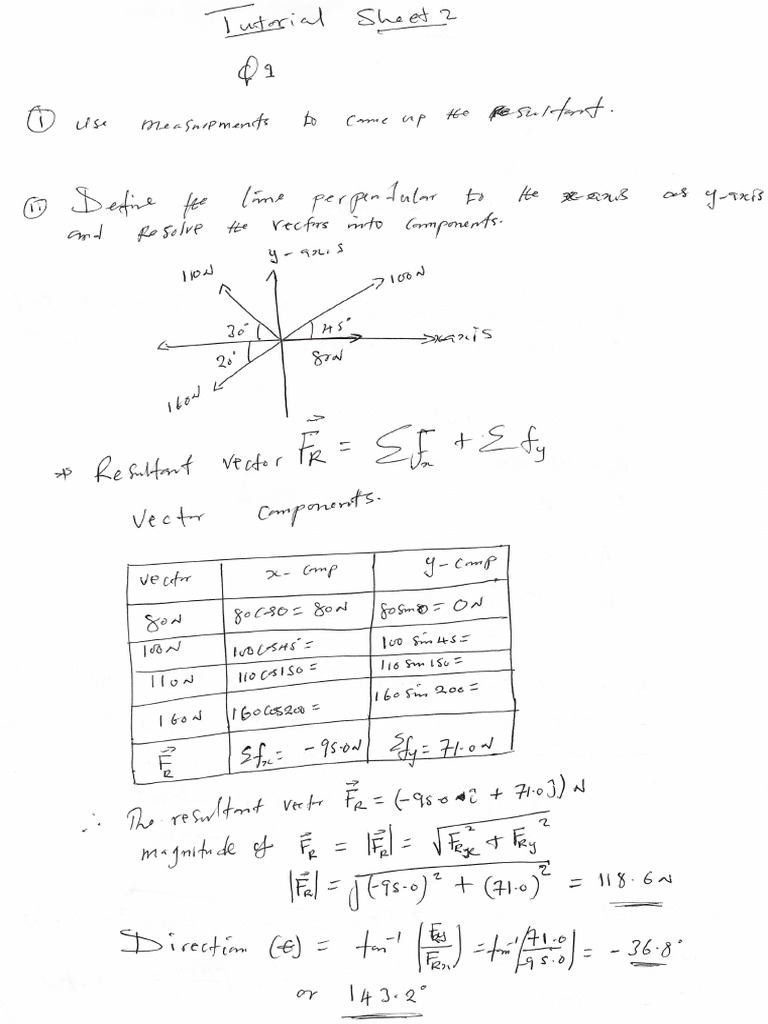 Tutorial Sheet 2
Q1
① Use measurements to come up the Resultant.
② Define the line perpendular to the x-axis as y-axis
and Resolve the vectors into components.
y-axis
110N
100N
30°
45°
x-axis
20°
80N
160N
* Resultant vector F⃗R = Σfx + Σfy
Vector components.
vector x-comp y-comp
80N 80cos0 = 80N 80sin0 = 0N
100N 100cos45° = 100 sin 45 =
110N 110cos150 = 110 sin 150 =
160N 160cos200 = 160 sin 200 =
F⃗R Σfx = -95.0N Σfy = 71.0N
∴ The resultant vector F⃗R = (-95.0 î + 71.0 ĵ) N
magnitude of F⃗R = |F⃗R| = √(FRx² + FRy²)
|F⃗R| = √((-95.0)² + (71.0)²) = 118.6N
Direction (θ) = tan⁻¹ (FRy/FRx) = tan⁻¹ (71.0/-95.0) = -36.8°
or 143.2°